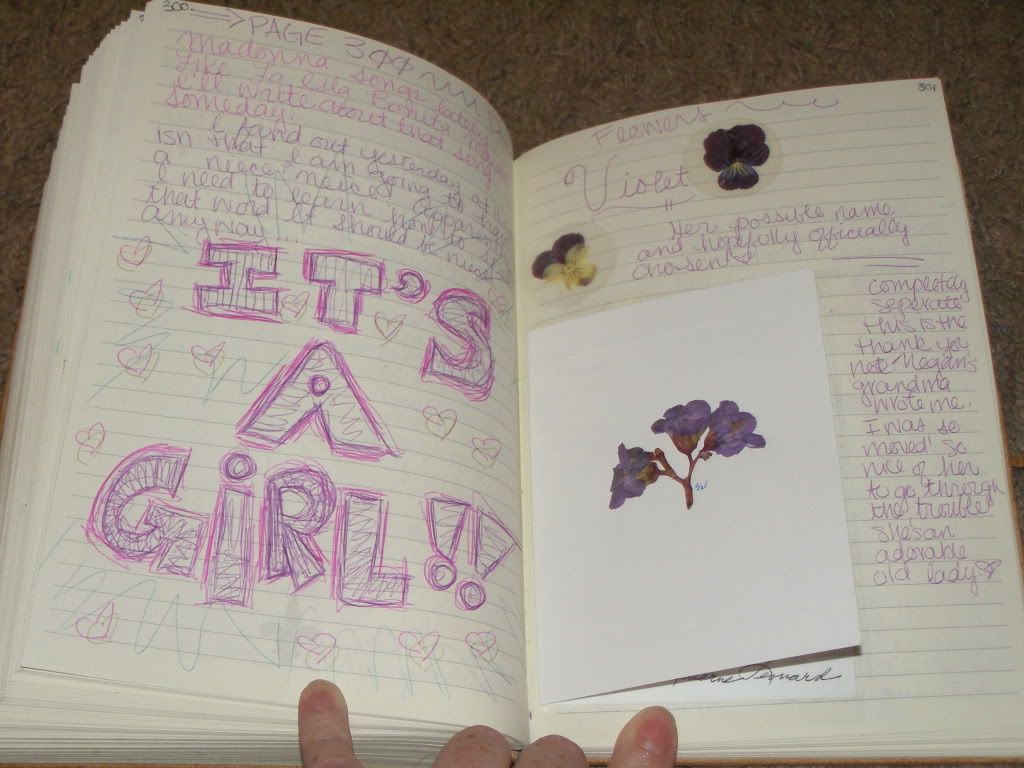 300
PAGE 300
Madonna songs lately
like La Isla Bonita
I'll write about that song
someday.
I found out yesterday
isn that I am going to
a neice/niece
I need to learn how to
that word it should be
anyway...
IT'S
A
GiRL!!
301
Flowers
Violet
Her possible name
and hopefully officially
chosen!
completely
seperate
this is the
thank you
not Megan's
grandma
wrote me.
I was so
moved! So
nice of her
to go through
the trouble
she's an
adorable
old lady